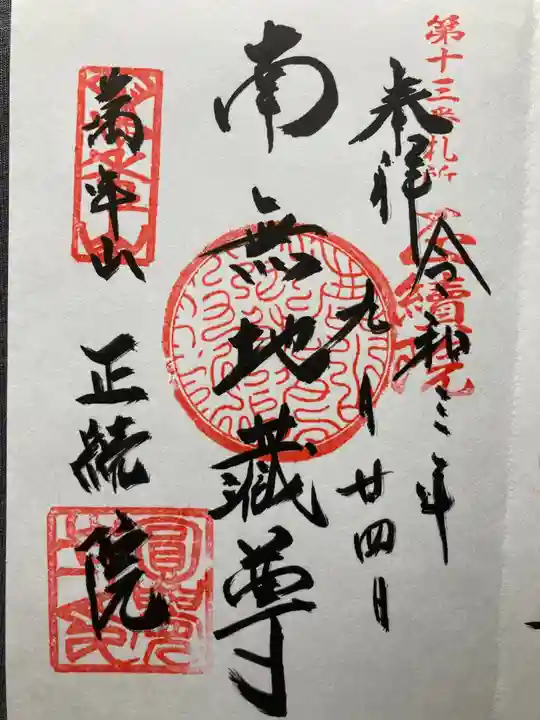 第十三番札所
正續院
奉拝 令和三年
九月廿四日
南無地蔵尊
萬年山
正続院